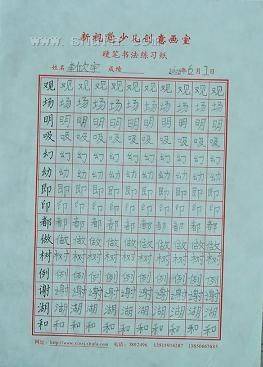 新视觉少儿创意画室
硬笔书法练习纸
姓名 成绩 6月1日
观观观观观观观观
场场场场场场场场
明明明明明明明明
吸吸吸吸吸吸吸吸
幻幻幻幻幻幻幻幻
幼幼幼幼幼幼幼幼
即即即即即即即即
印印印印印印印印
都都都都都都都都
做做做做做做做做
树树树树树树树树
例例例例例例例例
谢谢谢谢谢谢谢谢
湖湖湖湖湖湖湖湖
和和和和和和和和